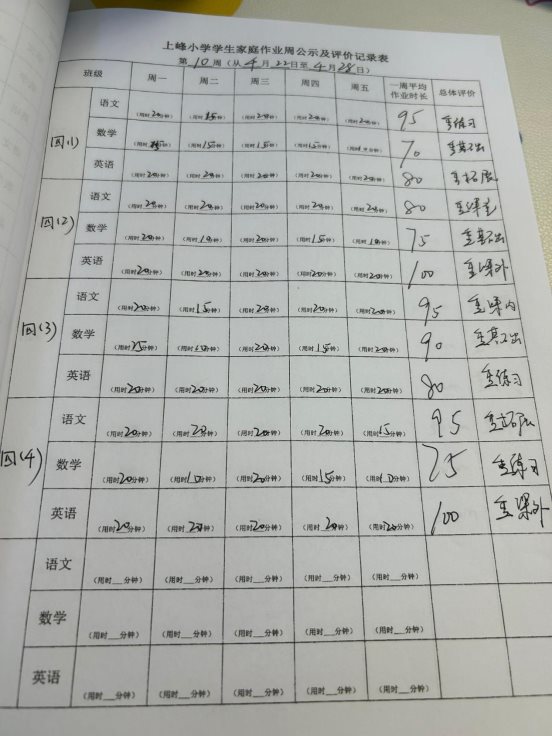 上峰小学学生家庭作业周公示及评价记录表
第 10 周（从 4 月 22 日至 4 月 28 日）
班级 周一 周二 周三 周四 周五 一周平均作业时长 总体评价
四(1) 语文 （用时20分钟） （用时15分钟） （用时20分钟） （用时20分钟） （用时20分钟） 95 重练习
数学 （用时 分钟） （用时15分钟） （用时15分钟） （用时15分钟） （用时10分钟） 70 重基础
英语 （用时20分钟） （用时20分钟） （用时20分钟） （用时20分钟） （用时20分钟） 80 重拓展
四(2) 语文 （用时20分钟） （用时20分钟） （用时20分钟） （用时20分钟） （用时20分钟） 80 重课
数学 （用时20分钟） （用时10分钟） （用时20分钟） （用时15分钟） （用时10分钟） 75 重基础
英语 （用时20分钟） （用时20分钟） （用时20分钟） （用时20分钟） （用时20分钟） 100 重课外
四(3) 语文 （用时20分钟） （用时15分钟） （用时20分钟） （用时20分钟） （用时20分钟） 95 重课内
数学 （用时25分钟） （用时10分钟） （用时20分钟） （用时15分钟） （用时20分钟） 90 重基础
英语 （用时20分钟） （用时20分钟） （用时20分钟） （用时20分钟） （用时20分钟） 80 重练习
四(4) 语文 （用时20分钟） （用时20分钟） （用时20分钟） （用时20分钟） （用时15分钟） 95 重拓展
数学 （用时20分钟） （用时10分钟） （用时20分钟） （用时15分钟） （用时10分钟） 75 重练习
英语 （用时20分钟） （用时20分钟） （用时20分钟） （用时20分钟） （用时20分钟） 100 重课外
语文 （用时___分钟） （用时___分钟） （用时___分钟） （用时___分钟） （用时___分钟）
数学 （用时___分钟） （用时___分钟） （用时___分钟） （用时___分钟） （用时___分钟）
英语 （用时___分钟） （用时___分钟） （用时___分钟） （用时___分钟） （用时___分钟）